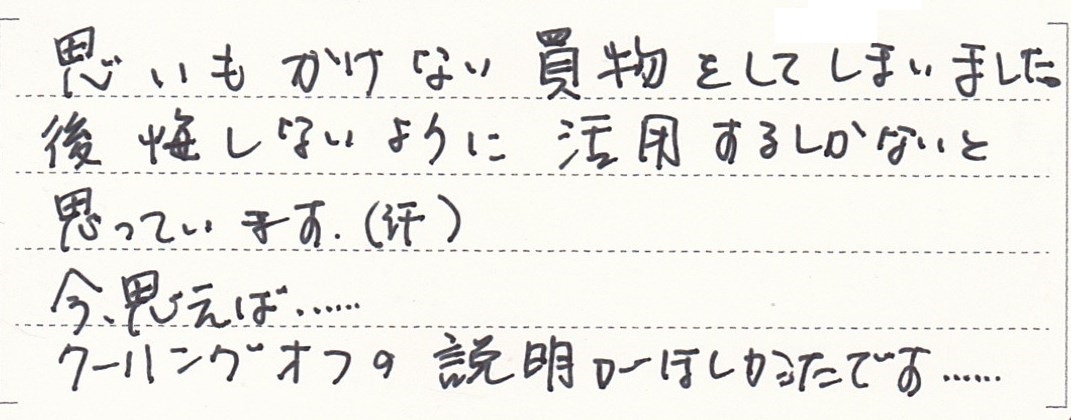 思いもかけない買物をしてしまいました。
後悔しないように活用するしかないと
思っています.(汗)
今、思えば......
クーリングオフの説明がほしかったです......